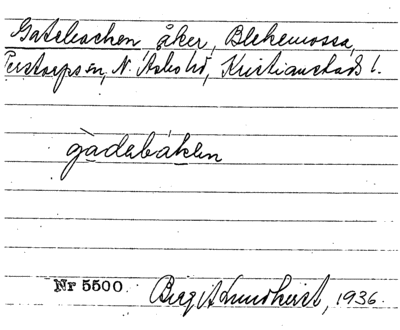 Gatebachen åker, Blekemossa,
Perstorps sn, N. Åsbo hd, Kristianstads l.
gàdebáken
Nr 5500 Birgit Lundkvist, 1936.